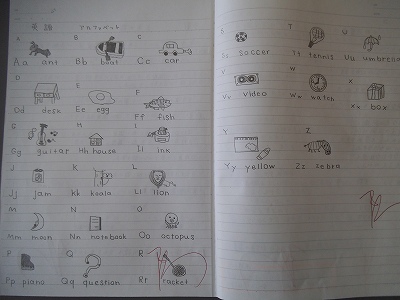 英語 アルファベット
A B C
Aa ant Bb boat Cc car
D E F
Dd desk Ee egg Ff fish
G H I
Gg guitar Hh house Ii ink
J K L
Jj jam Kk koala Ll lion
M N O
Mm moon Nn notebook Oo octopus
P Q R
Pp piano Qq question Rr racket
S T U
Ss soccer Tt tennis Uu umbrella
V W X
Vv video Ww watch Xx box
Y Z
Yy yellow Zz zebra